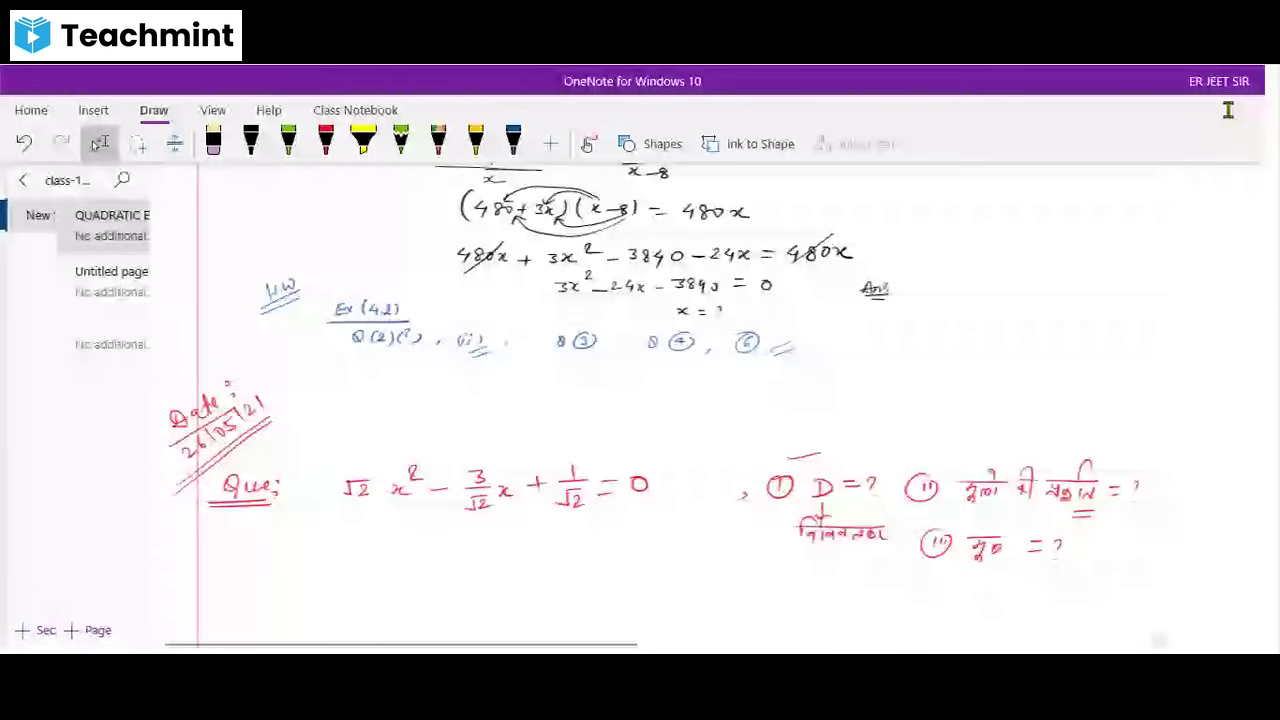 Teachmint
OneNote for Windows 10
ER JEET SIR
Home Insert Draw View Help Class Notebook
Shapes Ink to Shape
class-1...
New
QUADRATIC E
No additional.
Untitled page
No additional.
No additional.
x x-8
(480+3x)(x-8) = 480x
480x + 3x² - 3840 - 24x = 480x
3x² - 24x - 3840 = 0 Ans
x = ?
HW
Ex (4.2)
Q(2)(i), (ii), Q③ Q④, ⑥
Date:
26/05/21
Que: √2 x² - 3/√2 x + 1/√2 = 0, ① D = ? (ii) मूलों की प्रकृति = ?
(iii) मूल = ?
+ Sec + Page